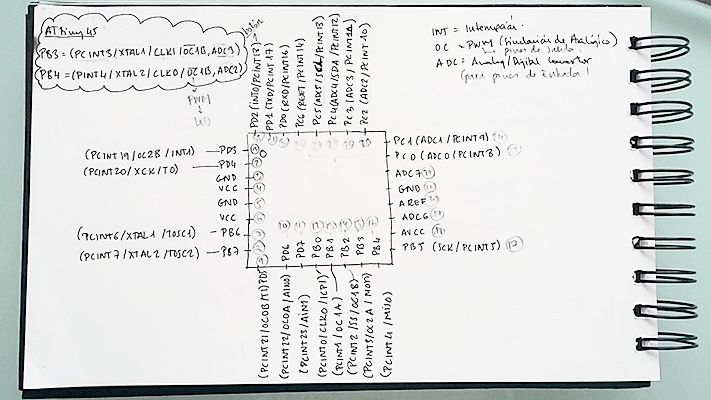 ATtiny45
PB3 = (PCINT3/XTAL1/CLKI/OC1B, ADC3)
PB4 = (PINT4/XTAL2/CLKO/OC1B, ADC2)
PWM
INT = Interrupción
OC → PWM (Simulación de Analógico)
ADC = Analog/Digital Converter
(para pines de Entrada!
PD2 (INT0/PCINT18)
PD1 (TXD/PCINT17)
PD0 (RXD/PCINT16)
PC6 (RSET/PCINT14)
PC5 (ADC5/SCL/PCINT13)
PC4 (ADC4/SDA/PCINT12)
PC3 (ADC3/PCINT11)
PC2 (ADC2/PCINT10)
(PCINT19/OC2B/INT1) — PD3
(PCINT20/XCK/T0) — PD4
GND
VCC
GND
VCC
(PCINT6/XTAL1/TOSC1) — PB6
(PCINT7/XTAL2/TOSC2) — PB7
PC1 (ADC1/PCINT9)
PC0 (ADC0/PCINT8)
ADC7
GND
AREF
ADC6
AVCC
PB5 (SCK/PCINT5) 17
PD6
PD7
PB0
PB1
PB2
PB3
PB4
(PCINT21/OC0B/T1) PD5
(PCINT22/OC0A/AIN0)
(PCINT23/AIN1)
(PCINT0/CLKO/ICP1)
(PCINT1/OC1A)
(PCINT2/SS/OC1B)
(PCINT3/OC2A/MOSI)
(PCINT4/MISO)